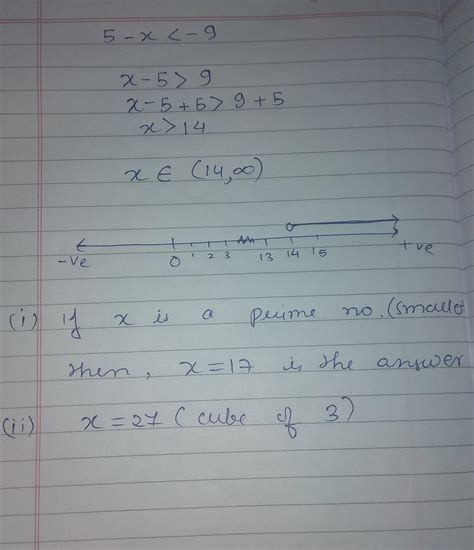 5 - x < -9
x - 5 > 9
x - 5 + 5 > 9 + 5
x > 14
x ∈ (14, ∞)
-ve 0 1 2 3 13 14 15 +ve
(i) If x is a prime no. (smalles
then, x = 17 is the answer
(ii) x = 27 (cube of 3)